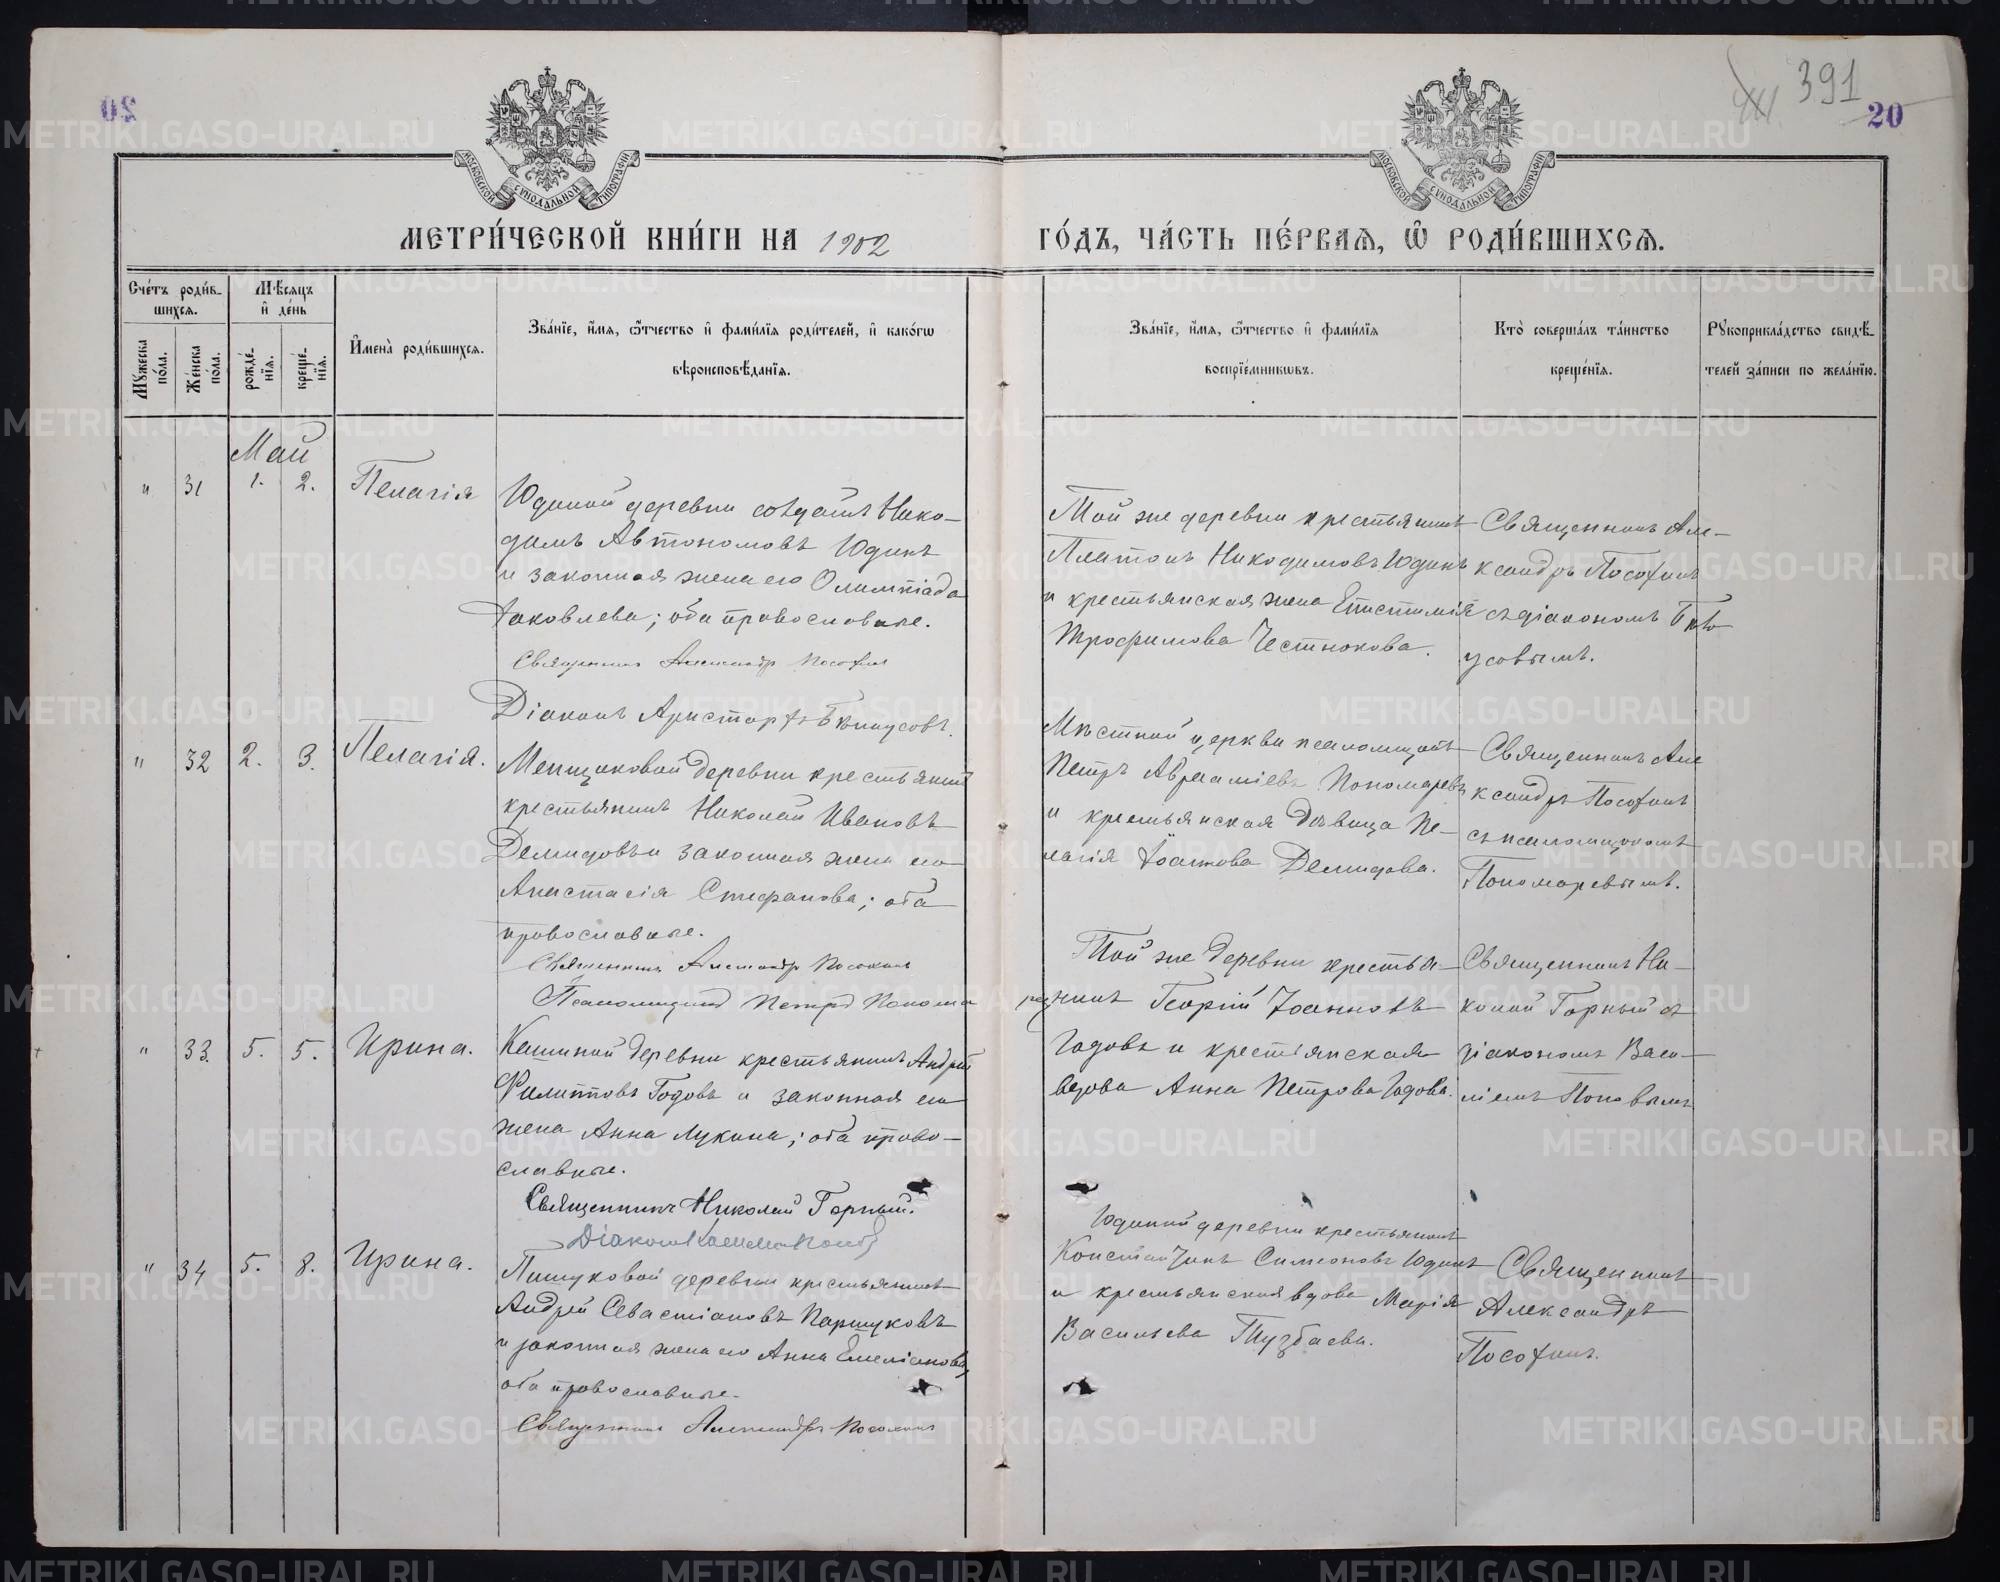 391
20
МОСКОВСКОЙ СУНОДАЛЬНОЙ ТИПОГРАФИИ
МОСКОВСКОЙ СУНОДАЛЬНОЙ ТИПОГРАФИИ
МЕТРИ́ЧЕСКОЙ КНИ́ГИ НА 1902
ГО́ДЪ, ЧА́СТЬ ПЕ́РВАѦ, Ѡ҆ РОДИ́ВШИХСѦ.
Сче́тъ роди́в-
шихсѧ.
Мѣ́сѧцъ
и҆ де́нь
Мꙋ́жеска
по́ла.
Же́нска
по́ла.
рожде́-
нїѧ.
креще́-
нїѧ.
И҆мена̀ роди́вшихсѧ.
Зва́нїе, и҆́мѧ, ѻ҆́тчество и҆ фами́лїѧ роди́телей, и҆ како́гѡ
вѣроисповѣ́данїѧ.
Зва́нїе, и҆́мѧ, ѻ҆́тчество и҆ фами́лїѧ
воспрїе́мникѡвъ.
Кто̀ соверша́лъ та́инство
креще́нїѧ.
Рꙋкоприкла́дство свидѣ́-
телей за́писи по жела́нїю.
Май
" 31 1. 2. Пелагія
Юдиной деревни солдатъ Нико-
димъ Автономовъ Юдинъ
и законная жена его Олимпіада
Іаковлева; оба православные.
Священникъ Александръ Посохинъ
Діаконъ Аристархъ Бѣлоусовъ.
Той же деревни крестьянинъ
Платонъ Никодимовъ Юдинъ
и крестьянская жена Епистимія
Трофимова Честнокова.
Священникъ Але-
ксандръ Посохинъ
съ діакономъ Бѣло-
усовымъ.
" 32 2. 3. Пелагія.
Менщиковой деревни крестьянинъ
крестьянинъ Николай Ивановъ
Демидовъ и законная жена его
Анастасія Стефанова; оба
православные.
Священникъ Александръ Посохинъ
Псаломщикъ Петръ Пономаревъ
Мѣстной церкви псаломщикъ
Петръ Авраміевъ Пономаревъ
и крестьянская дѣвица Пе-
лагія Іоаннова Демидова.
Священникъ Але
ксандръ Посохинъ
съ псаломщикомъ
Пономаревымъ.
" 33. 5. 5. Ирина.
Кашиной деревни крестьянинъ Андрей
Филипповъ Годовъ и законная его
жена Анна Лукина; оба право-
славные.
Священникъ Николай Горный.
Діаконъ Поповъ
Той же деревни крестья-
нинъ Георгій Іоанновъ
Годовъ и крестьянская
вдова Анна Петрова Годова.
Священникъ Ни-
колай Горный съ
діакономъ Васи-
ліемъ Поповымъ
" 34 5. 8. Ирина.
деревни крестьянинъ
Андрей Севастіановъ Паршуковъ
и законная жена его Анна Емеліанова,
оба православные.
Священникъ Александръ Посохинъ
Юдиной деревни крестьянинъ
Константинъ Симеоновъ Юдинъ
и крестьянская вдова Марія
Васильева Тузбаева.
Священникъ
Александръ
Посохинъ.
METRIKI.GASO-URAL.RU